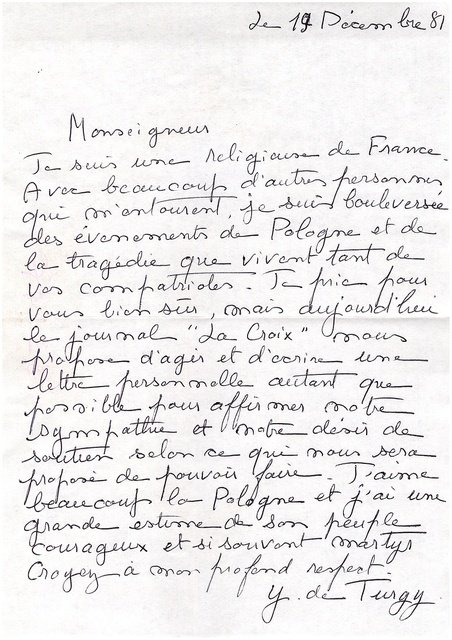 Le 19 Décembre 81
Monseigneur
Je suis une religieuse de France.
Avec beaucoup d'autres personnes
qui m'entourent, je suis bouleversée
des évènements de Pologne et de
la tragédie que vivent tant de
vos compatriotes. Je prie pour
vous bien sûr, mais aujourd'hui
le journal "La Croix" nous
propose d'agir et d'écrire une
lettre personnelle autant que
possible pour affirmer notre
sympathie et notre désir de
soutien selon ce qui nous sera
proposé de pouvoir faire. J'aime
beaucoup la Pologne et j'ai une
grande estime de son peuple
courageux et si souvent martyr
Croyez à mon profond respect.
Y. de Turgy.